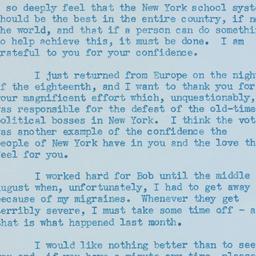 so deeply feel that the New York school syst
hould be the best in the entire country, if n
he world, and that if a person can do somethi
o help achieve this, it must be done. I am
rateful to you for your confidence.
I just returned from Europe on the nigh
f the eighteenth, and I want to thank you for
our magnificent effort which, unquestionably,
as responsible for the defeat of the old-time
olitical bosses in New York. I think the vot
as another example of the confidence the
eople of New York have in you and the love th
eel for you.
I worked hard for Bob until the middle
ugust when, unfortunately, I had to get away
ecause of my migraines. Whenever they get
erribly severe, I must take some time off - a
hat is what happened last month.
I would like nothing better than to see